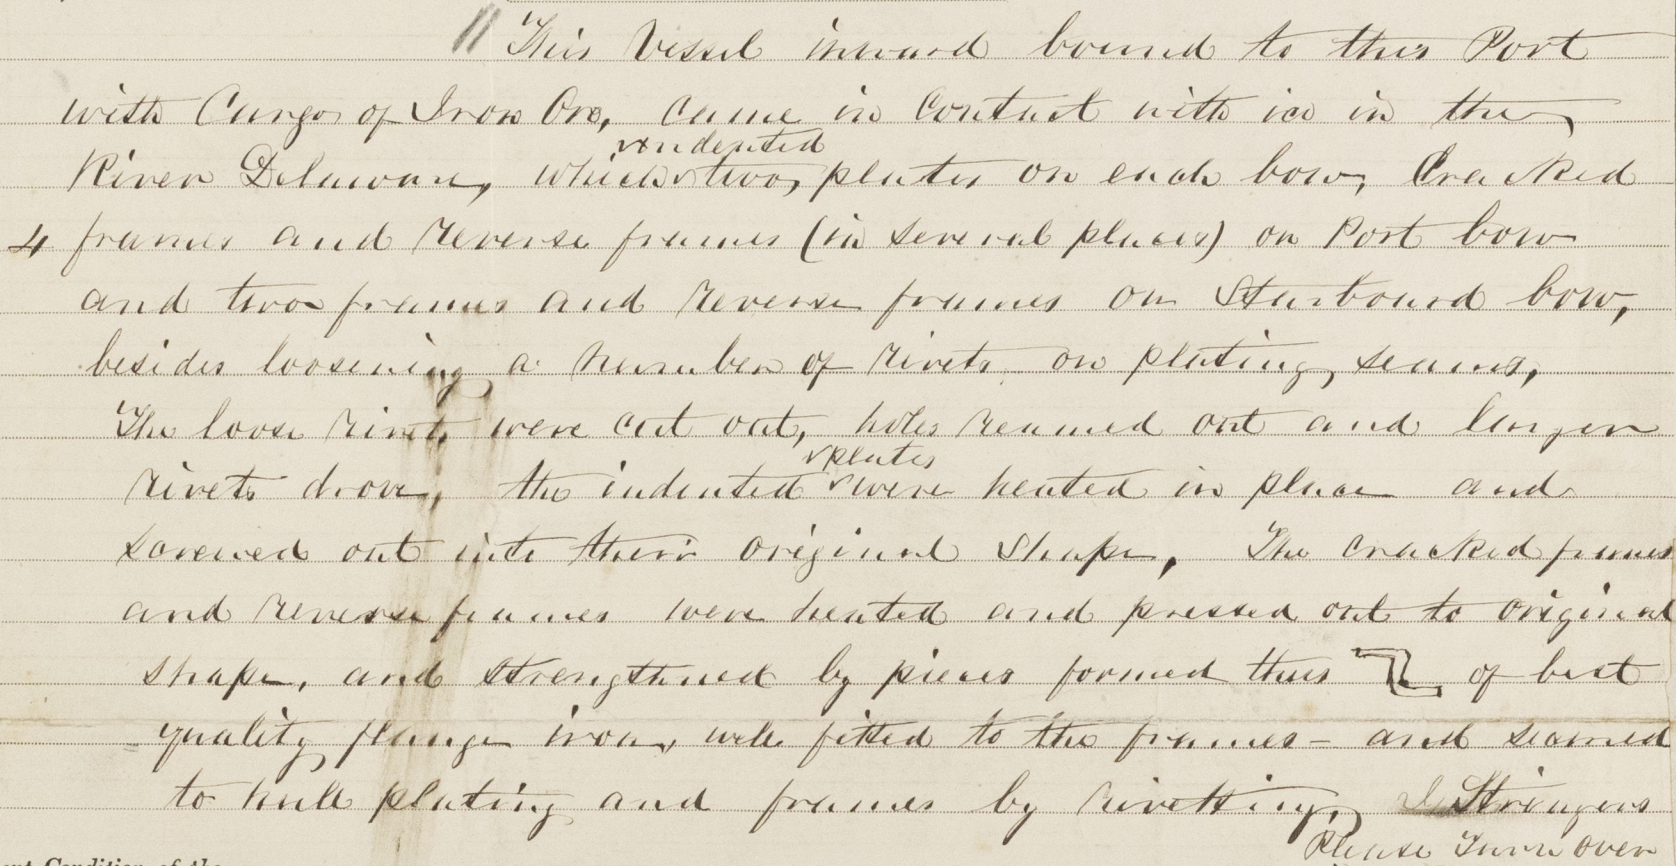 This Vessel inward bound to this Port
with Cargo of Iron Ore, came in Contact with ice in the
indented
River Delaware, which two plates on each bow, Cracked
4 frames and reverse frames (in several places) on Port bow
and two frames and reverse frames on Starboard bow,
besides loosening a number of rivets on plating seams,
The loose rivets were cut out, holes reamed out and larger
plates
rivets drove, the indented were heated in place and
screwed out into their original shape, The cracked frames
and reverse frames were heated and pressed out to original
shape, and strengthened by pieces formed thus of best
quality flange iron, well fitted to the frames - and seamed
to hull plating and frames by rivetting, Stringers
Please Turn Over